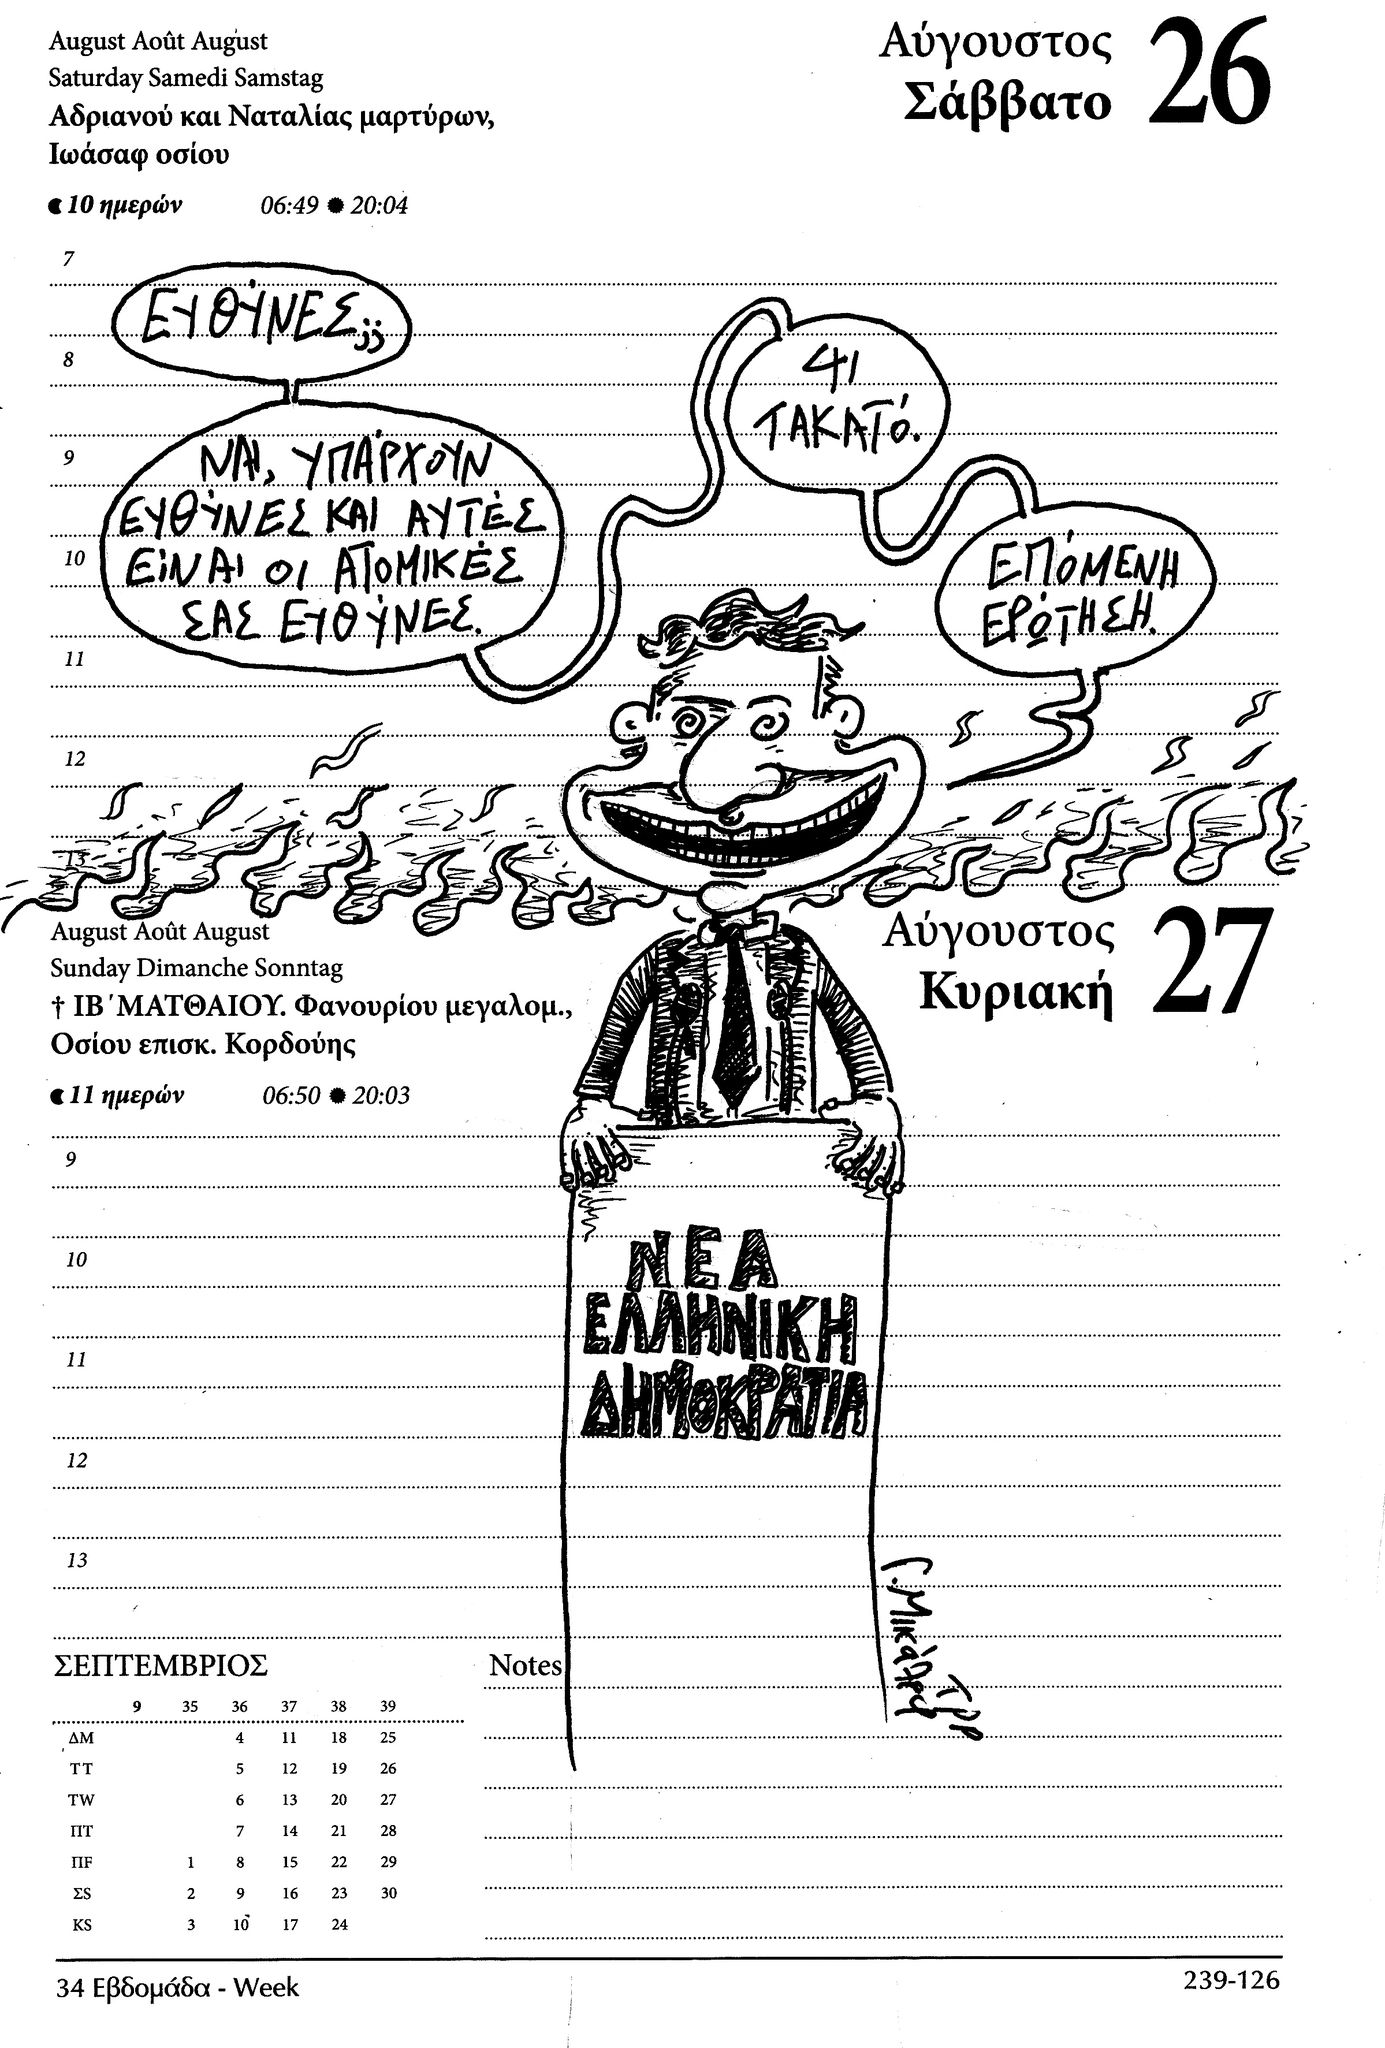 August Août August
Saturday Samedi Samstag
Αδριανού και Ναταλίας μαρτύρων,
Ιωάσαφ οσίου
10 ημερών 06:49 20:04
Αύγουστος
Σάββατο
26
7
8
9
10
11
12
13
ΕΥΘΎΝΕΣ;;
ΝΑΙ, ΥΠΆΡΧΟΥΝ
ΕΥΘΎΝΕΣ ΚΑΙ ΑΥΤΈΣ
ΕΊΝΑΙ ΟΙ ΑΤΟΜΙΚΈΣ
ΣΑΣ ΕΥΘΎΝΕΣ.
ΤΑΚΑΤΌ.
ΕΠΌΜΕΝΗ
ΕΡΏΤΗΣΗ.
August Août August
Sunday Dimanche Sonntag
† ΙΒ΄ ΜΑΤΘΑΙΟΥ. Φανουρίου μεγαλομ.,
Οσίου επισκ. Κορδούης
11 ημερών 06:50 20:03
Αύγουστος
Κυριακή
27
9
10
11
12
13
ΝΕΑ
ΕΛΛΗΝΙΚΗ
ΔΗΜΟΚΡΑΤΙΑ
ΣΕΠΤΕΜΒΡΙΟΣ
9 35 36 37 38 39
ΔM 4 11 18 25
ΤT 5 12 19 26
ΤW 6 13 20 27
ΠT 7 14 21 28
ΠF 1 8 15 22 29
ΣS 2 9 16 23 30
ΚS 3 10 17 24
Notes
34 Εβδομάδα - Week
239-126